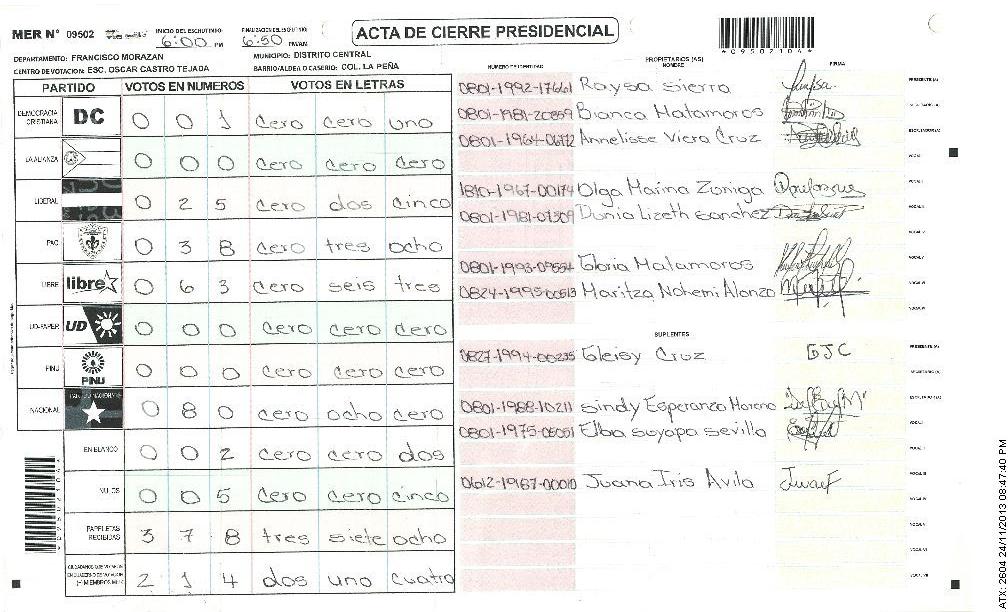 MER N° 09502
INICIO DEL ESCRUTINIO 6:00 PM
FINALIZACION DEL ESCRUTINIO 6:50 PM/AM
ACTA DE CIERRE PRESIDENCIAL
*09502104*
DEPARTAMENTO: FRANCISCO MORAZAN MUNICIPIO: DISTRITO CENTRAL
CENTRO DE VOTACION: ESC. OSCAR CASTRO TEJADA BARRIO/ALDEA O CASERIO: COL. LA PEÑA
PARTIDO VOTOS EN NUMEROS VOTOS EN LETRAS
DEMOCRACIA CRISTIANA DC 0 0 1 cero cero uno
LA ALIANZA 0 0 0 cero cero cero
LIBERAL 0 2 5 cero dos cinco
PAC 0 3 8 cero tres ocho
LIBRE libre 0 6 3 cero seis tres
UD-FAPER UD 0 0 0 cero cero cero
PINU PINU 0 0 0 cero cero cero
NACIONAL 0 8 0 cero ocho cero
EN BLANCO 0 0 2 cero cero dos
NULOS 0 0 5 cero cero cinco
PAPELETAS RECIBIDAS 3 7 8 tres siete ocho
CIUDADANOS QUE VOTARON 2 1 4 dos uno cuatro
NUMERO DE IDENTIDAD PROPIETARIOS (AS) NOMBRE FIRMA
0801-1992-17661 Raysa Sierra PRESIDENTE (A)
0801-1981-20859 Bianca Matamoros SECRETARIO (A)
0801-1964-06772 Annelisse Viera Cruz ESCRUTADOR (A)
VOCAL I
1810-1967-00174 Olga Marina Zuniga
0801-1981-07309 Dunia Lizeth Sanchez
0801-1993-09554 Gloria Matamoros
0824-1995-00513 Maritza Nohemi Alonzo
SUPLENTES
0827-1994-00235 Gleisy Cruz GJC PRESIDENTE (A)
SECRETARIO (A)
0801-1988-10211 Sindy Esperanza Moreno ESCRUTADOR (A)
0801-1975-05051 Elba Suyapa Sevilla
0612-1987-00010 Juana Iris Avila
ATX: 2604 24/11/2013 08:47:40 PM